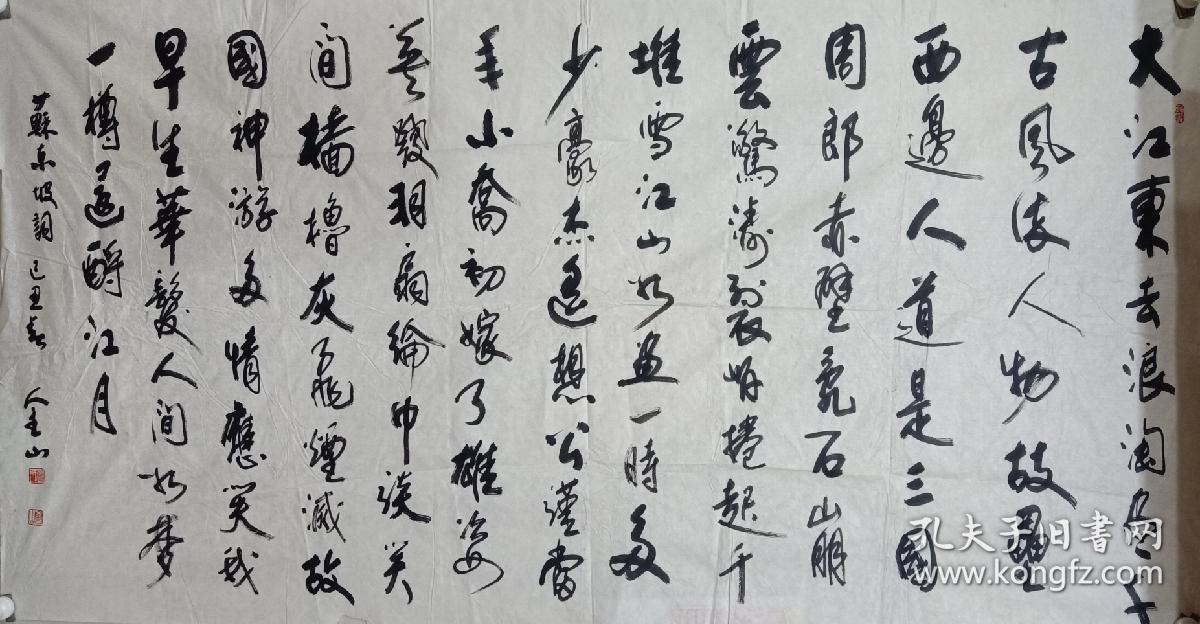 大江東去浪淘尽千
古風流人物故壘
西邊人道是三國
周郎赤壁乱石山崩
雲驚濤裂岸捲起千
堆雪江山如畫一時多
少豪杰遥想公瑾当
年小喬初嫁了雄姿
英發羽扇綸巾談笑
间檣櫓灰飛煙滅故
國神游多情應笑我
早生華髮人间如夢
一樽還酹江月
蘇东坡詞 己丑春 金山
孔夫子旧书网
www.kongfz.com